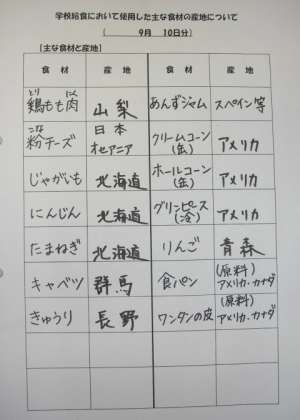 学校給食において使用した主な食材の産地について
( 9月 10日分)
【主な食材と産地】
食材 産地 食材 産地
とり にく
鶏もも肉 山梨 あんずジャム スペイン等
こな
粉チーズ 日本 オセアニア クリームコーン(缶) アメリカ
じゃがいも 北海道 ホールコーン(缶) アメリカ
にんじん 北海道 グリンピース(冷) アメリカ
たまねぎ 北海道 りんご 青森
キャベツ 群馬 食パン (原料)アメリカ・カナダ
きゅうり 長野 ワンタンの皮 (原料)アメリカ・カナダ